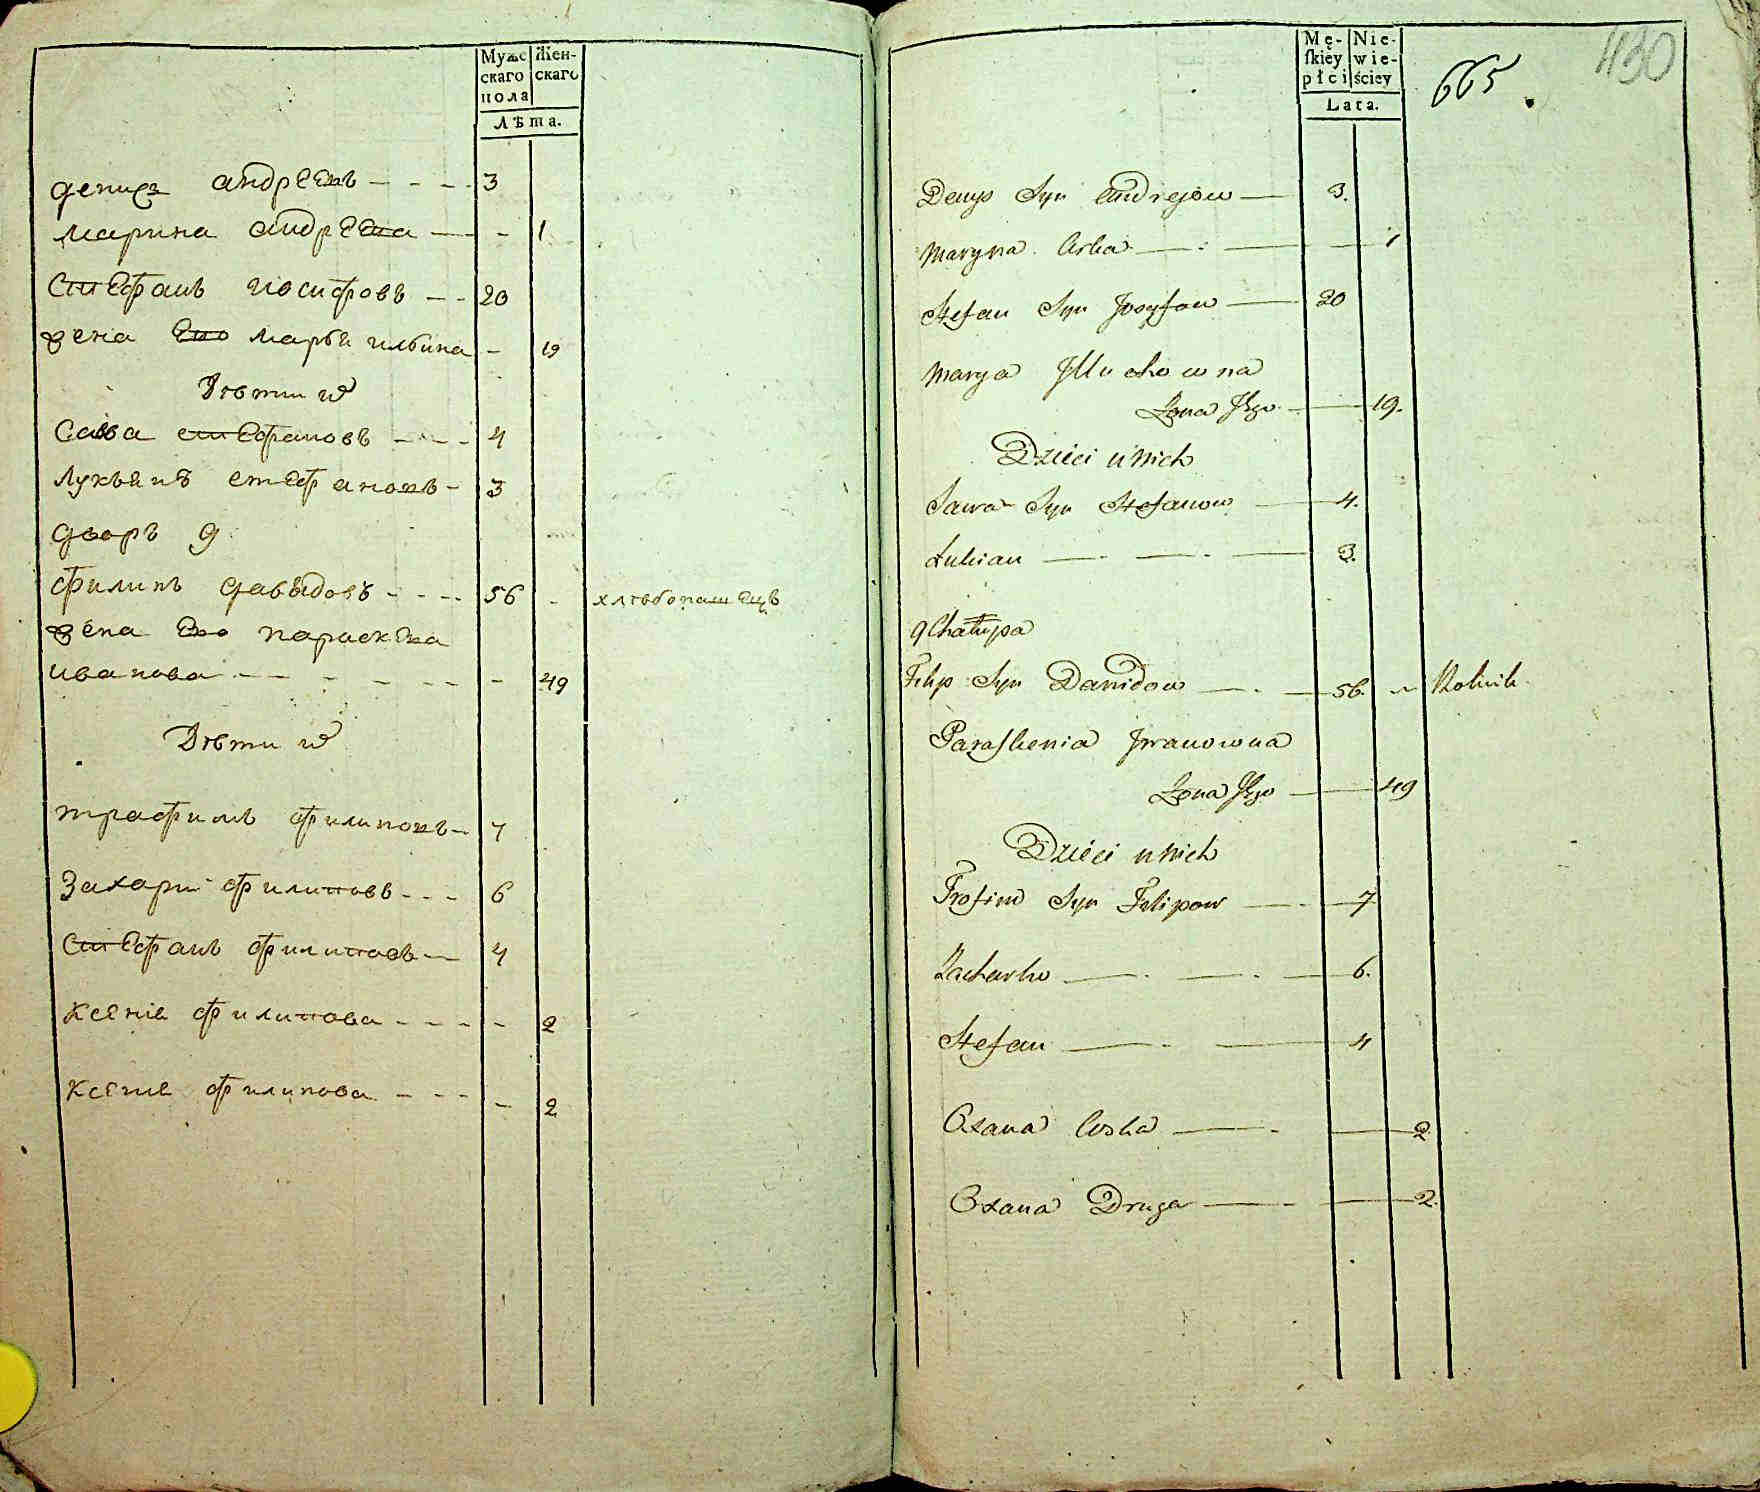 Мужс Жен-
скаго скаго
пола
Лѣта.
Денисъ андреевъ - - - - 3
марина андреева - - 1
Стефанъ иосифовъ - - 20
жена его марья ильина - 19
Дѣти их
Савва стефановъ - - - 4
лукьянъ стефановъ - 3
дворъ 9
филипъ давыдовъ - - - - 56 - хлѣбопашецъ
жена его параскева
иванова - - - - - - - 49
Дѣти их
трафимъ филиповъ - 7
Захарий филиповъ - - - 6
Стефанъ филиповъ - 4
Ксения филипова - - - - - 2
Ксения филипова - - - - 2
Mę- Nie-
skiey wie-
płci ściey
Lata.
665
430
Denys Syn Andrejow — 3.
Maryna Corka — 1
Stefan Syn Jozyfow — 20
Marya
Żona Jego — 19.
Dzieci u nich
Sawa Syn Stefanow — 4.
Łukian — 3.
9 Chałupa
Filip Syn Dawidow — 56. Rolnik
Paraskewia Iwanowna
Żona Jego — 49
Dzieci u nich
Trofim Syn Filipow — 7
Zacharko — 6.
Stefan — 4
Oxana Corka — 2
Oxana Druga — 2.